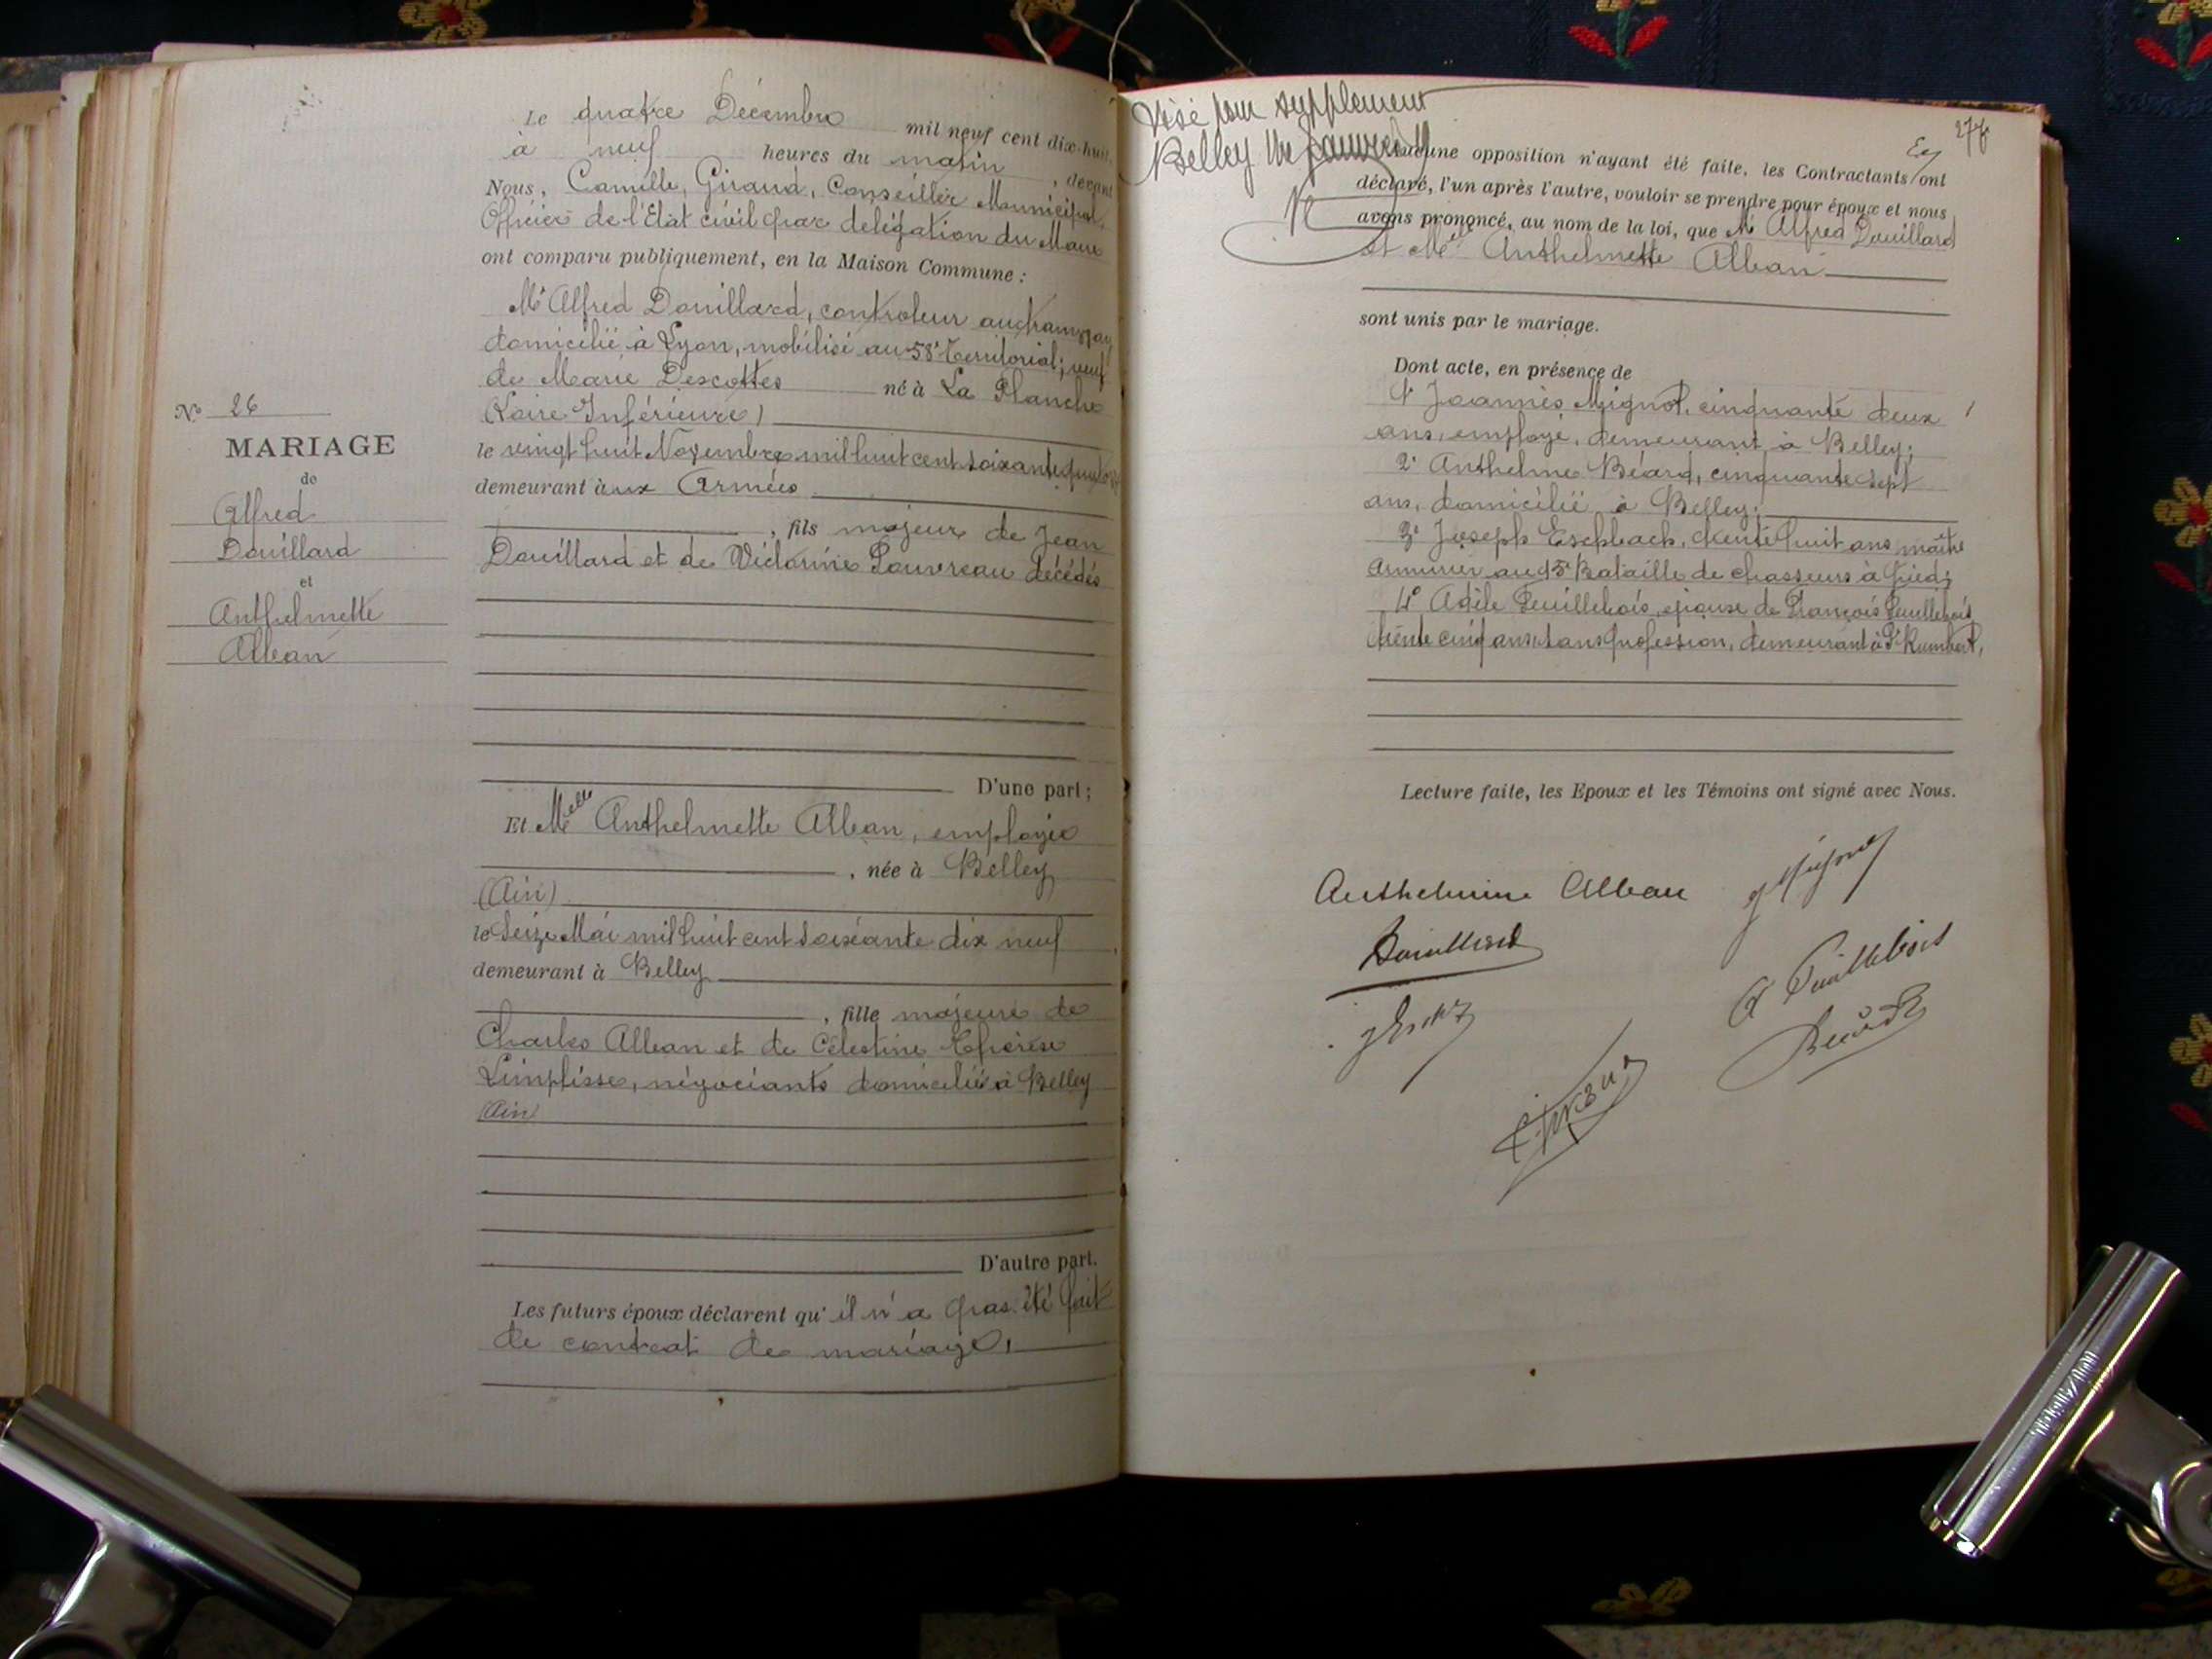 Le quatre Décembre mil neuf cent dix-huit
à neuf heures du matin, devant
Nous, Camille Giraud, Conseiller Municipal,
Officier de l'Etat civil par délégation du Maire
ont comparu publiquement, en la Maison Commune :
Mr Alfred Douillard, controleur aux tramways
domicilié à Lyon, mobilisé au 58e Territorial; veuf
de Marie Descottes né à La Planche
(Loire Inférieure)
le vingt huit Novembre mil huit cent soixante
demeurant aux Armées
, fils majeur de Jean
Douillard et de Victorine Pouvreau décédés
D'une part ;
Et Melle Anthelmette Alban, employée
, née à Belley
(Ain)
le Seize Mai mil huit cent soixante dix neuf
demeurant à Belley
, fille majeure de
Charles Alban et de Célestine Thérèse
négociants domiciliés à Belley
(Ain)
D'autre part.
Les futurs époux déclarent qu'il n'a pas été fait
de contrat de mariage,
No 26
MARIAGE
de
Alfred
Douillard
et
Anthelmette
Alban
Visé pour supplement
Belley
277
Aucune opposition n'ayant été faite, les Contractants ont
déclaré, l'un après l'autre, vouloir se prendre pour époux et nous
avons prononcé, au nom de la loi, que Mr Alfred Douillard
et Melle Anthelmette Alban
sont unis par le mariage.
Dont acte, en présence de
1° Joannès Mignot, cinquante deux
ans, employé, demeurant à Belley;
2° Anthelme Béard, cinquante sept
ans, domicilié à Belley;
3° Joseph Eschbach, trente huit ans maître
armurier au 15e Bataille de chasseurs à pied;
4° Adèle Puillebois, épouse de François Puillebois
trente cinq ans, sans profession, demeurant à St Rambert,
Lecture faite, les Epoux et les Témoins ont signé avec Nous.
Anthelmine Alban
J Mignot
Douillard
A Puillebois
Béard